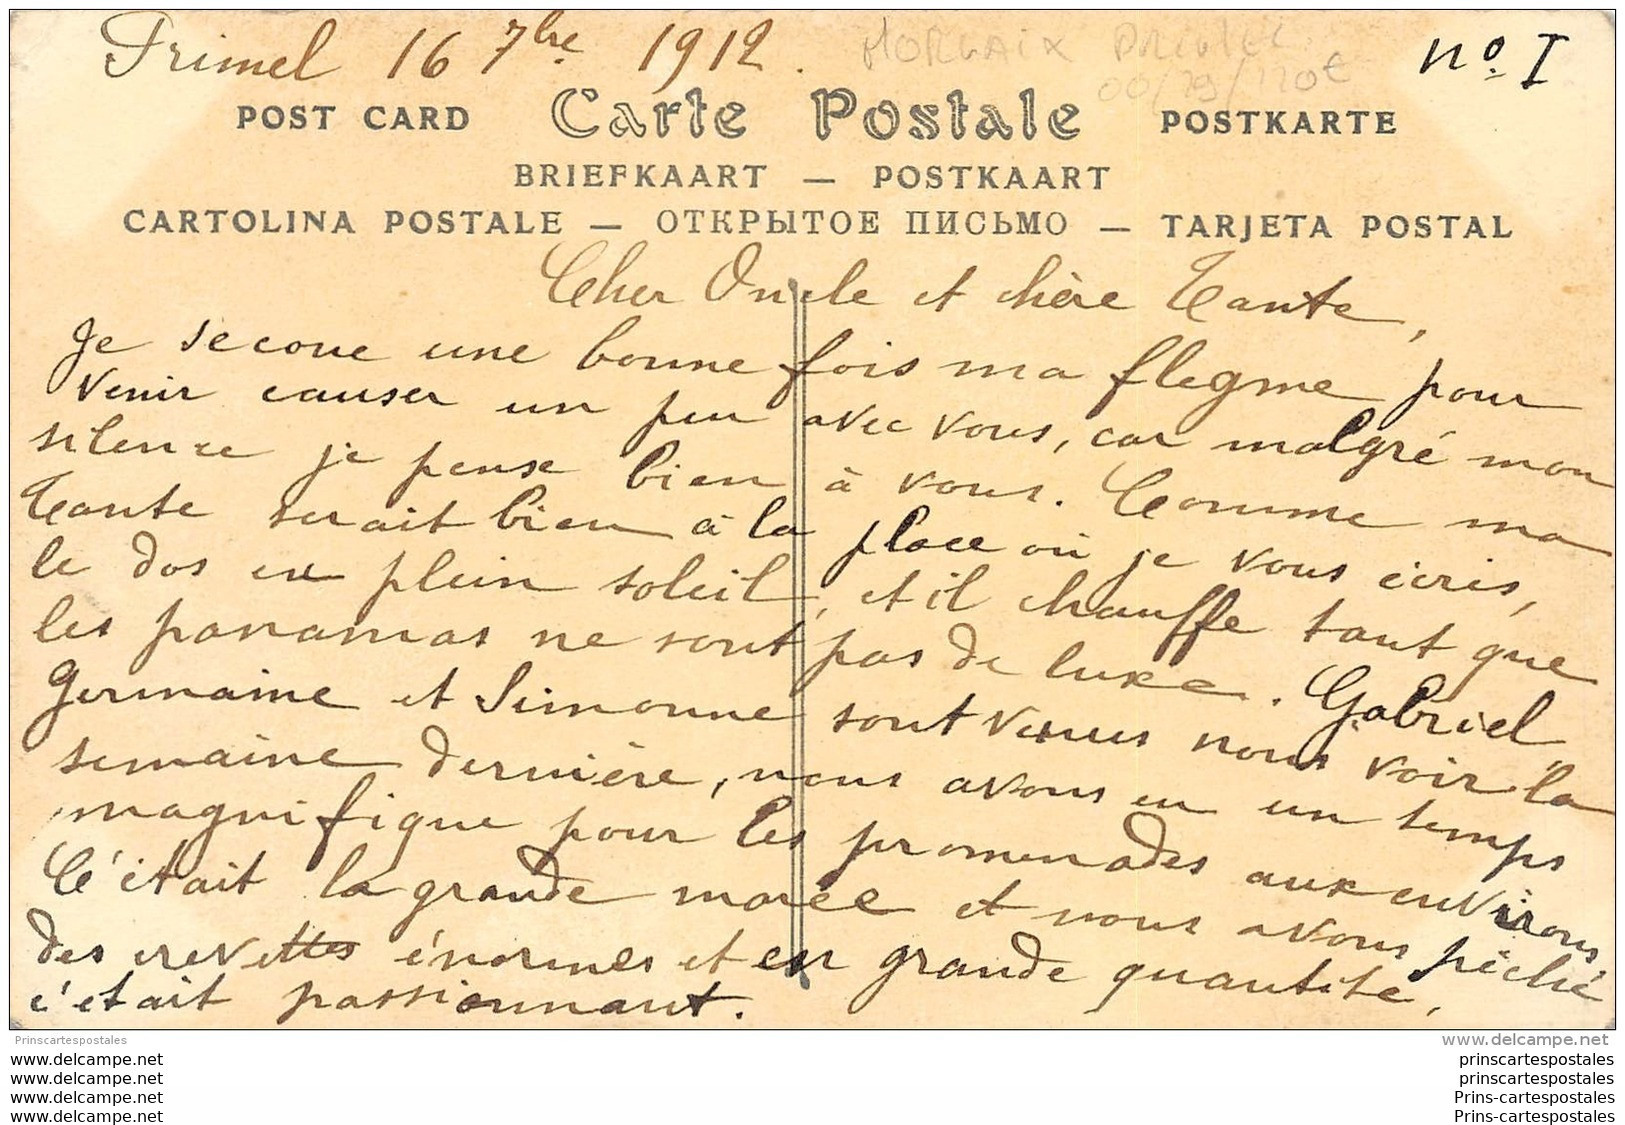 Primel 16 7bre 1912.
MORLAIX PRIMEL
00/29/120€
no. I
POST CARD Carte Postale POSTKARTE
BRIEFKAART — POSTKAART
CARTOLINA POSTALE — ОТКРЫТОЕ ПИСЬМО — TARJETA POSTAL
Cher Oncle et chère Tante,
Je secoue une bonne fois ma flegme pour
venir causer un peu avec vous, car malgré mon
silence je pense bien à vous. Comme ma
Tante serait bien à la place où je vous écris,
le dos en plein soleil, et il chauffe tant que
les panamas ne sont pas de luxe. Gabriel,
Germaine et Simonne sont venus nous voir la
semaine dernière, nous avons eu un temps
magnifique pour les promenades aux environs,
C'était la grande marée et nous avons pêché
des crevettes énormes et en grande quantité,
c'était passionnant.
Prinscartespostales
www.delcampe.net
www.delcampe.net
www.delcampe.net
www.delcampe.net
www.delcampe.net
prinscartespostales
prinscartespostales
Prins-cartespostales
Prins-cartespostales